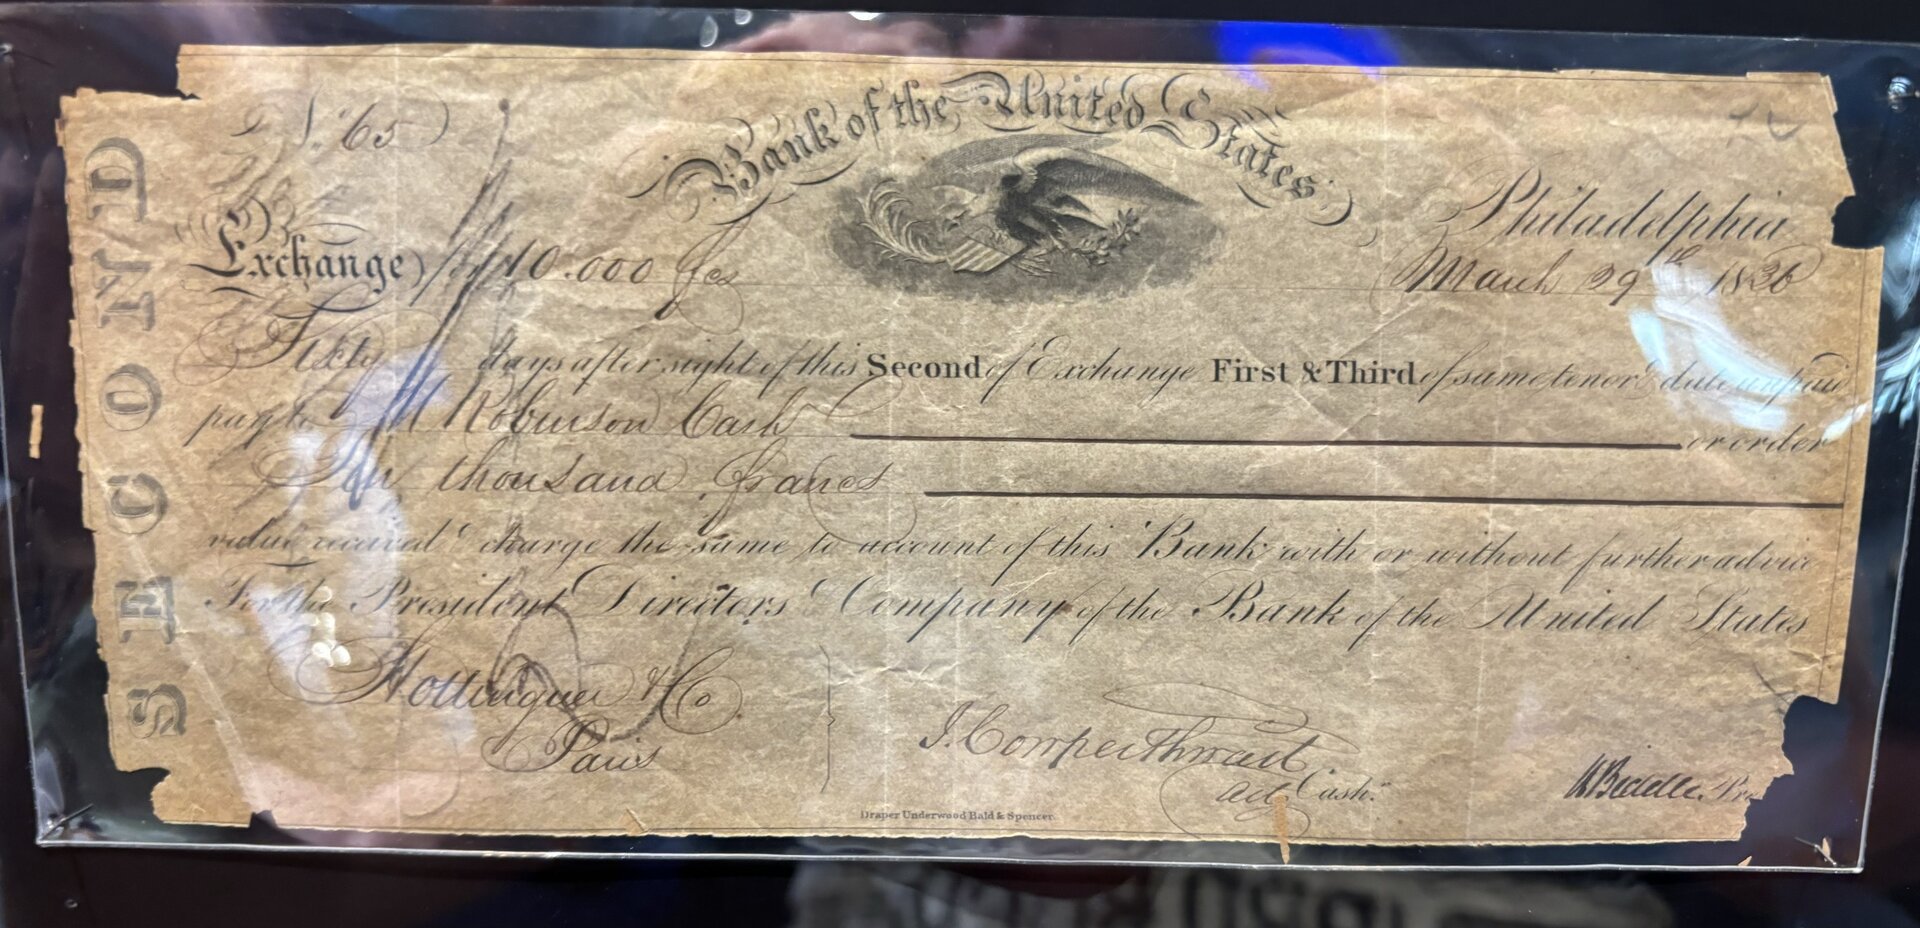 No. 65
Bank of the United States
Philadelphia
Exchange for 10.000 fcs
March 29th 1836
Sixty days after sight of this Second of Exchange First & Third of same tenor & date unpaid
pay to M Robinson Cash or order
Ten thousand francs
value received & charge the same to account of this Bank with or without further advice
For the President Directors & Company of the Bank of the United States
Hottinguer & Co
Paris
J. Cowperthwait
actg Cashr.
N Biddle. Pre
Draper Underwood Bald & Spencer.
SECOND